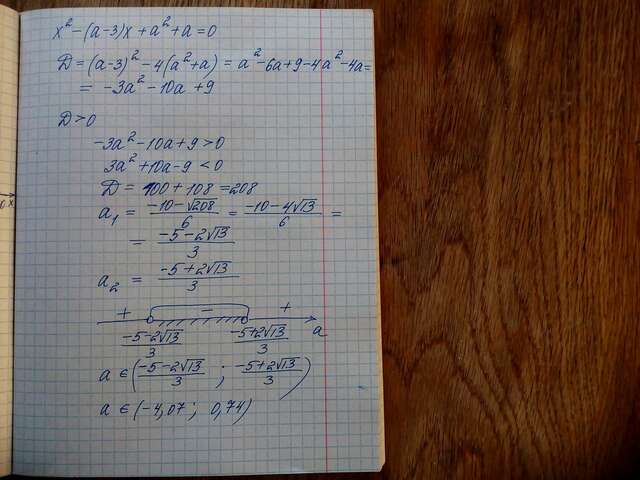 x² - (a-3)x + a² + a = 0
D = (a-3)² - 4(a²+a) = a² - 6a + 9 - 4a² - 4a =
= -3a² - 10a + 9
D > 0
-3a² - 10a + 9 > 0
3a² + 10a - 9 < 0
D = 100 + 108 = 208
a₁ = (-10-√208)/6 = (-10-4√13)/6 =
= (-5-2√13)/3
a₂ = (-5+2√13)/3
+ - +
(-5-2√13)/3 (-5+2√13)/3 a
a ∈ ((-5-2√13)/3 ; (-5+2√13)/3)
a ∈ (-4,07 ; 0,74)
0 x